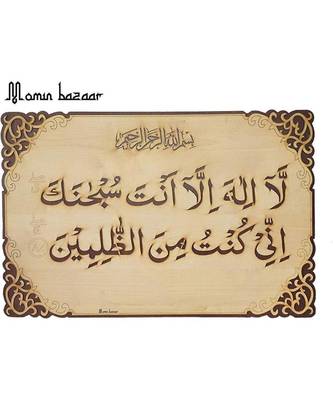 Momin bazaar
بسم الله الرحمن الرحيم
لَّا اِلٰهَ اِلَّا اَنْتَ سُبْحٰنَكَ
اِنِّىْ كُنْتُ مِنَ الظّٰلِمِيْنَ
Momin bazaar